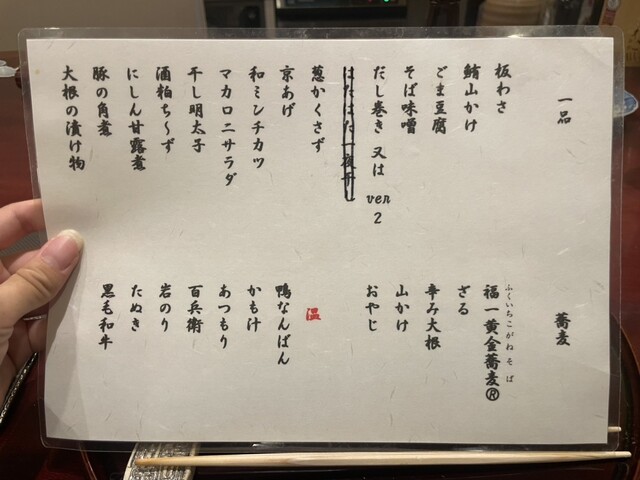 一品
板わさ
鮪山かけ
ごま豆腐
そば味噌
だし巻き 又は ver 2
はたはた一夜干し
葱かくさず
京あげ
和ミンチカツ
マカロニサラダ
干し明太子
酒粕ち〜ず
にしん甘露煮
豚の角煮
大根の漬け物
蕎麦
ふくいちこがねそば
福一黄金蕎麦®
ざる
辛み大根
山かけ
おやじ
温
鴨なんばん
かも汁
あつもり
百兵衛
岩のり
たぬき
黒毛和牛